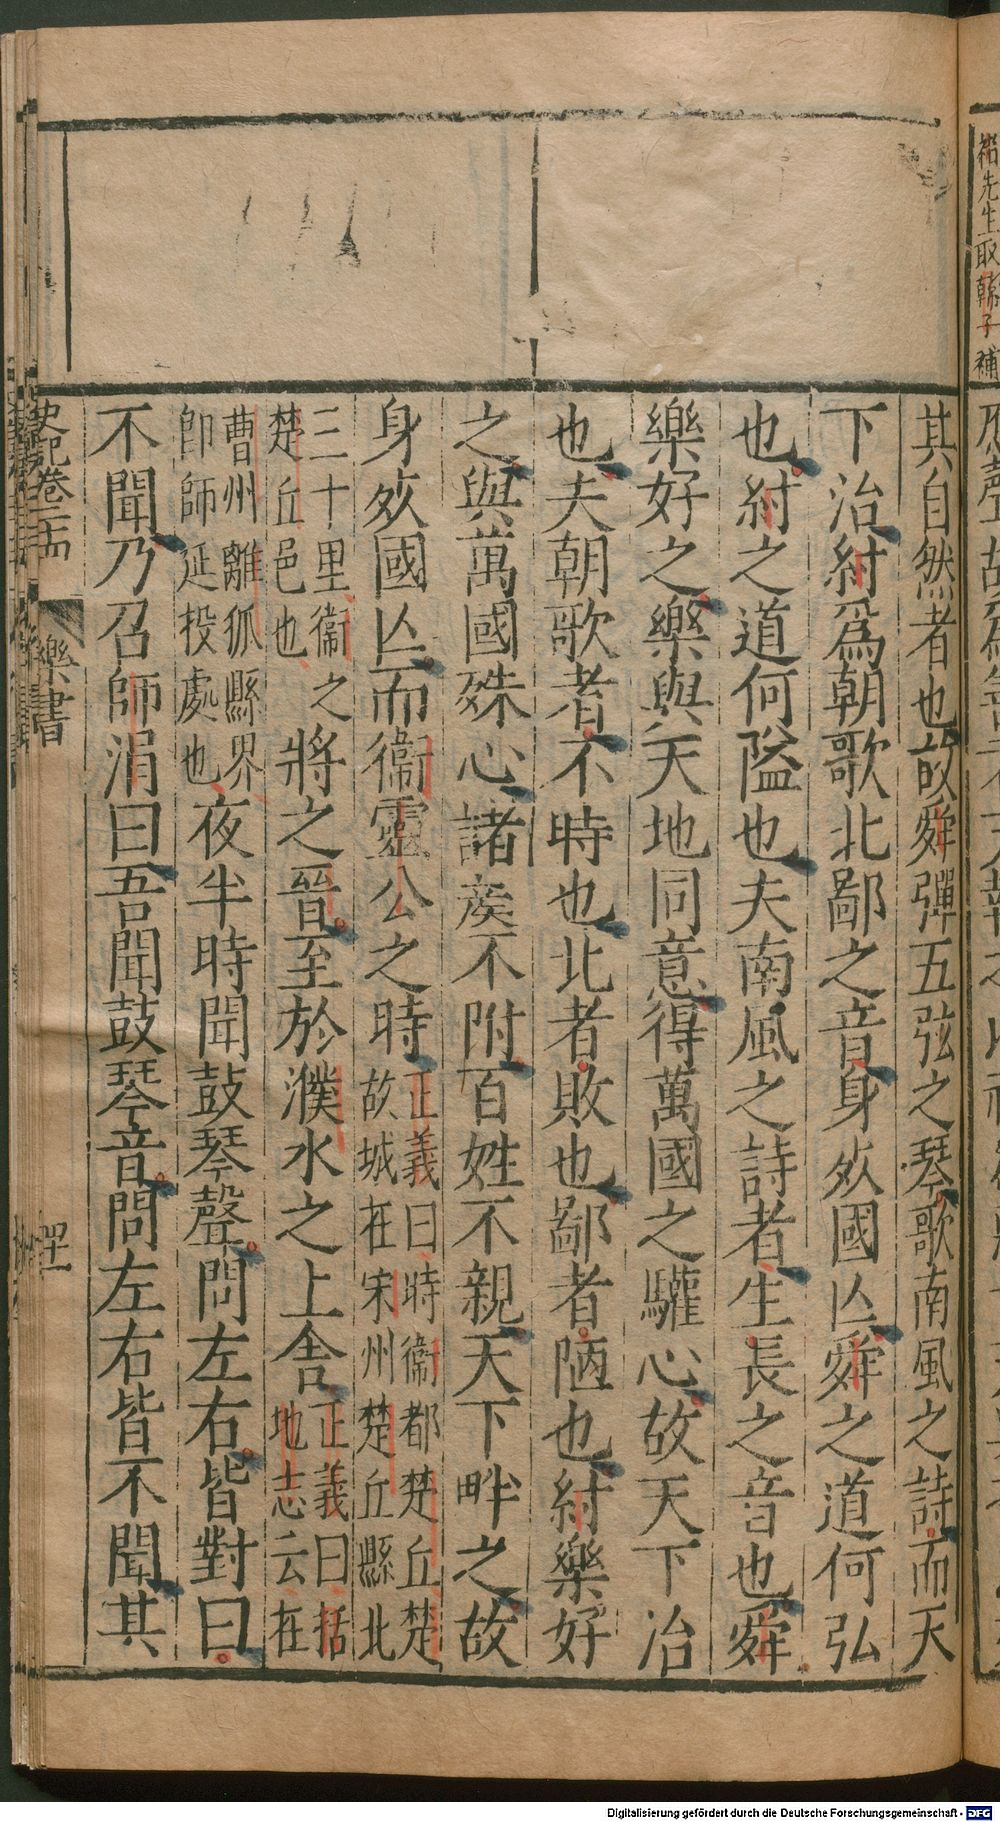 褚先生取韓子補
其自然者也故舜彈五弦之琴歌南風之詩而天
下治紂爲朝歌北鄙之音身死國亾舜之道何弘
也紂之道何隘也夫南風之詩者生長之音也舜
樂好之樂與天地同意得萬國之驩心故天下治
也夫朝歌者不時也北者敗也鄙者陋也紂樂好
之與萬國殊心諸矦不附百姓不親天下畔之故
身死國亾而衞靈公之時正義曰時衞都楚丘楚
故城在宋州楚丘縣北
三十里衞之
楚丘邑也將之晉至於濮水之上舍正義曰括
地志云在
曹州離狐縣界
卽師延投處也夜半時聞鼓琴聲問左右皆對曰
不聞乃召師涓曰吾聞鼓琴音問左右皆不聞其
史記卷二十四 樂書
Digitalisierung gefördert durch die Deutsche Forschungsgemeinschaft - DFG